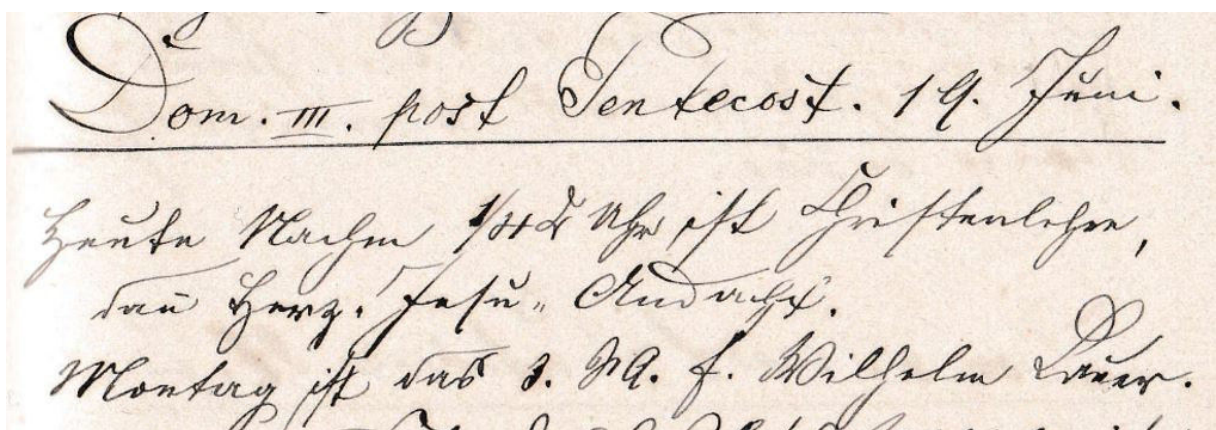 Dom. III. post Pentecost. 19. Juni.
Heute Nachm 1/4 2 Uhr ist Christenlehre,
dañ Herz-Jesu-Andacht.
Montag ist das 3. A. f. Wilhelm Lauer.